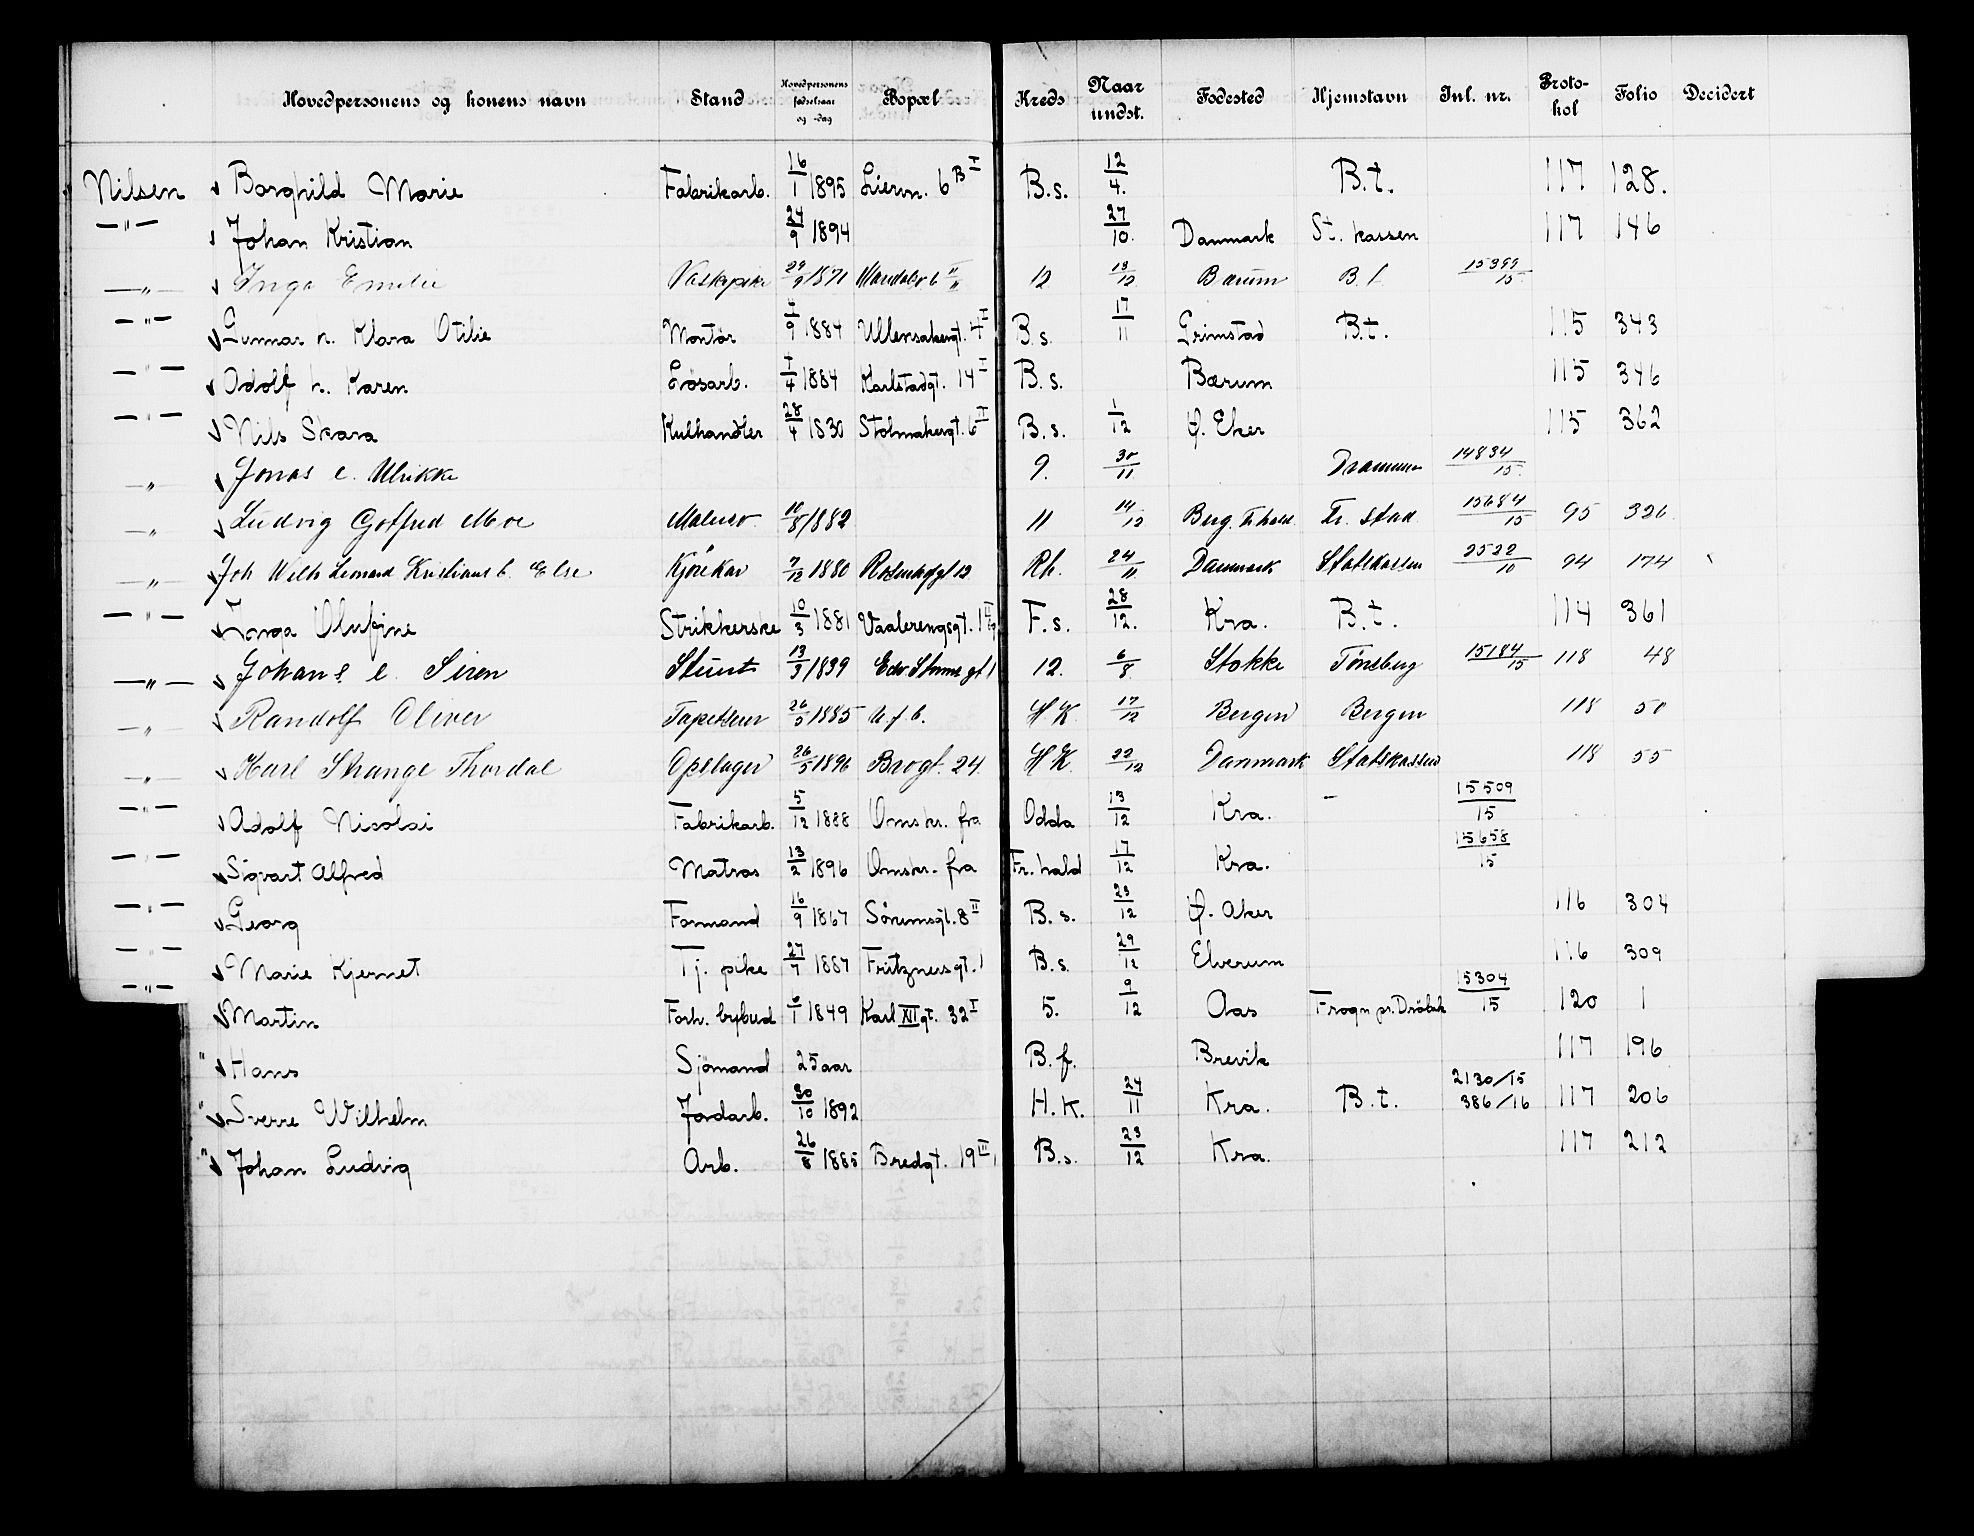 Hovedpersonens og konens navn Stand Hovedpersonens fødselsaar og -dag Bopæl Kreds Naar undst. Fødested Hjemstavn Inl. nr. Proto-kol Folio Decidert
Nilsen Borghild Marie Fabrikarb. 16/1 1895 Lierv. 6 B I B.s. 12/4. B.t. 117 128.
—"— Johan Kristian 24/9 1894 27/10. Danmark St. kassen 117 146
—"— Inga Emilie Vaskepike 29/9 1871 6 II 12 13/12 Bærum B.t. 15399/15
—"— Gunnar h. Klara Otilie Montør 9 1884 Ullensakergt. 4 I B.s. 17/11 Grimstad B.t. 115 343
—"— Adolf h. Karen Løsarb. 4 1884 Karlstadgt. 14 I B.s. Bærum 115 346
—"— Nils Skara Kulhandler 28/4 1830 Stolmakergt. 6 II B.s. 1/12 Ø. Eker 115 362
—"— Jonas e. Ulrikke 9. 30/11 Drammen 14834/15.
—"— Ludvig Gotfred Moe Maler 10/8 1882 11 14/12 Berg. Fr.hald Fr. stad 15684/15 95 326
—"— Joh Wilh Leonard Kristians h. Else Kjørekar 7/12 1880 12 Rh. 24/11 Danmark Statskassen 2522/10 94 174
—"— Inga Olufine Strikkerske 10/3 1881 Vaalerengsgt. 1 F.s. 28/12. Kra. B.t. 114 361
—"— Johans e. Siren 13/9 1839 Edv Storms gt 1 12. 6/8 Stokke Tønsberg 15184/15 118 48
—"— Randolf Oliver Tapetserer 26/5 1885 u.f.b. HK 17/12 Bergen Bergen 118 50
—"— Karl Strange Thordal Opslager 26/5 1896 Brogt. 24. HK. 22/12 Danmark Statskassen 118 55
—"— Adolf Nicolai Fabrikarb. 5/12 1888 Omskr. fra Odda 13/12 Kra. — 15509/15
—"— Sigvart Alfred Matros 13/2 1896 Omskr. fra Fr. hald 17/12 Kra. 15658/15
—"— Georg Formand 16/9 1867 Sørumsgt. 8 II B.s. 23/12 Ø. Aker 116 304
—"— Marie Kjernet Tj. pike 27/7 1887 Fritznersgt. 1 B.s. 29/12 Elverum 116 309
—"— Martin Forh. bybud 1 1849 Karl XII gt. 32 I 5. 9/12 Aas Frogn pr. Drøbak 15304/15 120 1
" Hans Sjømand 25 aar B.f. Brevik 117 196
" Sverre Wilhelm Jordarb. 30/10 1892 H.K. 24/11 Kra. B.t. 2130/15 386/16 117 206
" Johan Ludvig Arb. 26/8 1885 Bredgt. 19 III B.s. 23/12 Kra. 117 212